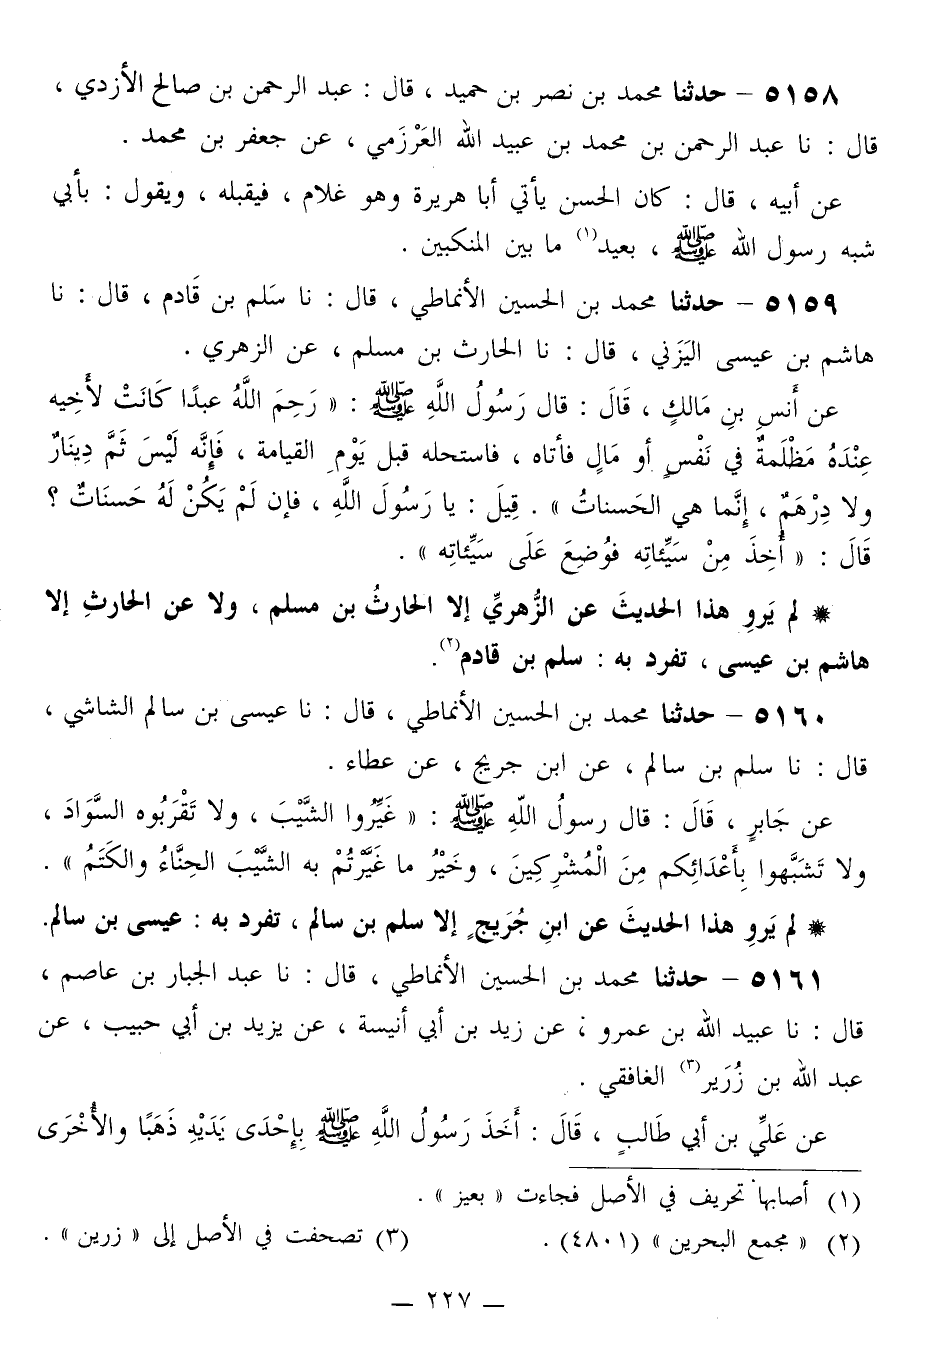 ٥١٥٨ – حدثنا محمد بن نصر بن حميد ، قال : عبد الرحمن بن صالح الأزدي ،
قال : نا عبد الرحمن بن محمد بن عبيد الله العَرْزَمي ، عن جعفر بن محمد .
عن أبيه ، قال : كان الحسن يأتي أبا هريرة وهو غلام ، فيقبله ، ويقول : بأبي
شبه رسول الله ﷺ ، بعيد(١) ما بين المنكبين .
٥١٥٩ – حدثنا محمد بن الحسين الأنماطي ، قال : نا سَلم بن قَادم ، قال : نا
هاشم بن عيسى اليَزَني ، قال : نا الحارث بن مسلم ، عن الزهري .
عن أَنسِ بنِ مَالكٍ ، قَالَ : قال رَسُولُ اللَّهِ ﷺ : « رَحِمَ اللَّهُ عبدًا كَانَتْ لأَخِيه
عِنْدَهُ مَظْلَمةٌ في نَفْسٍ أو مَالٍ فأتاه ، فاستحله قبل يَوْمِ القيامة ، فَإِنَّه لَيْسَ ثَمَّ دِينَارٌ
ولا دِرْهَمٌ ، إِنَّما هي الحَسناتُ » . قِيلَ : يا رَسُولَ اللَّهِ ، فإن لَمْ يَكُنْ لَهُ حَسنَاتٌ ؟
قَالَ : « أُخِذَ مِنْ سَيِّئاتِه فوُضِعَ عَلَى سَيِّئاتِه » .
* لم يَروِ هذا الحديثَ عن الزُّهريِّ إلا الحارثُ بن مسلم ، ولا عن الحارثِ إلا
هاشم بن عيسى ، تفرد به : سلم بن قادم(٢).
٥١٦٠ – حدثنا محمد بن الحسين الأنماطي ، قال : نا عيسى بن سالم الشاشي ،
قال : نا سلم بن سالم ، عن ابن جريج ، عن عطاء .
عن جَابرٍ ، قَالَ : قال رسولُ اللّهِ ﷺ : « غَيِّرُوا الشَّيْبَ ، ولا تَقْرَبُوه السَّوَادَ ،
ولا تَشَبَّهوا بِأَعْدَائِكم مِنَ الْمُشْرِكِينَ ، وخَيْرُ ما غَيَّرْتُمْ به الشَّيْبَ الحِنَّاءُ والكَتَمُ » .
* لم يَروِ هذا الحديثَ عن ابنِ جُرَيجٍ إلا سلم بن سالم ، تفرد به : عيسى بن سالم.
٥١٦١ – حدثنا محمد بن الحسين الأنماطي ، قال : نا عبد الجبار بن عاصم ،
قال : نا عبيد الله بن عمرو ، عن زيد بن أبي أنيسة ، عن يزيد بن أبي حبيب ، عن
عبد الله بن زُرَير(٣) الغافقي .
عن عَلَيِّ بن أبي طَالبٍ ، قَالَ : أَخَذَ رَسُولُ اللَّهِ ﷺ بِإِحْدَى يَدَيْهِ ذَهَبًا والأُخْرَى
(١) أصابها تحريف في الأصل فجاءت « بعيز » .
(٢) « مجمع البحرين » (٤٨٠١) .
(٣) تصحفت في الأصل إلى « زرين » .
– ٢٢٧ –